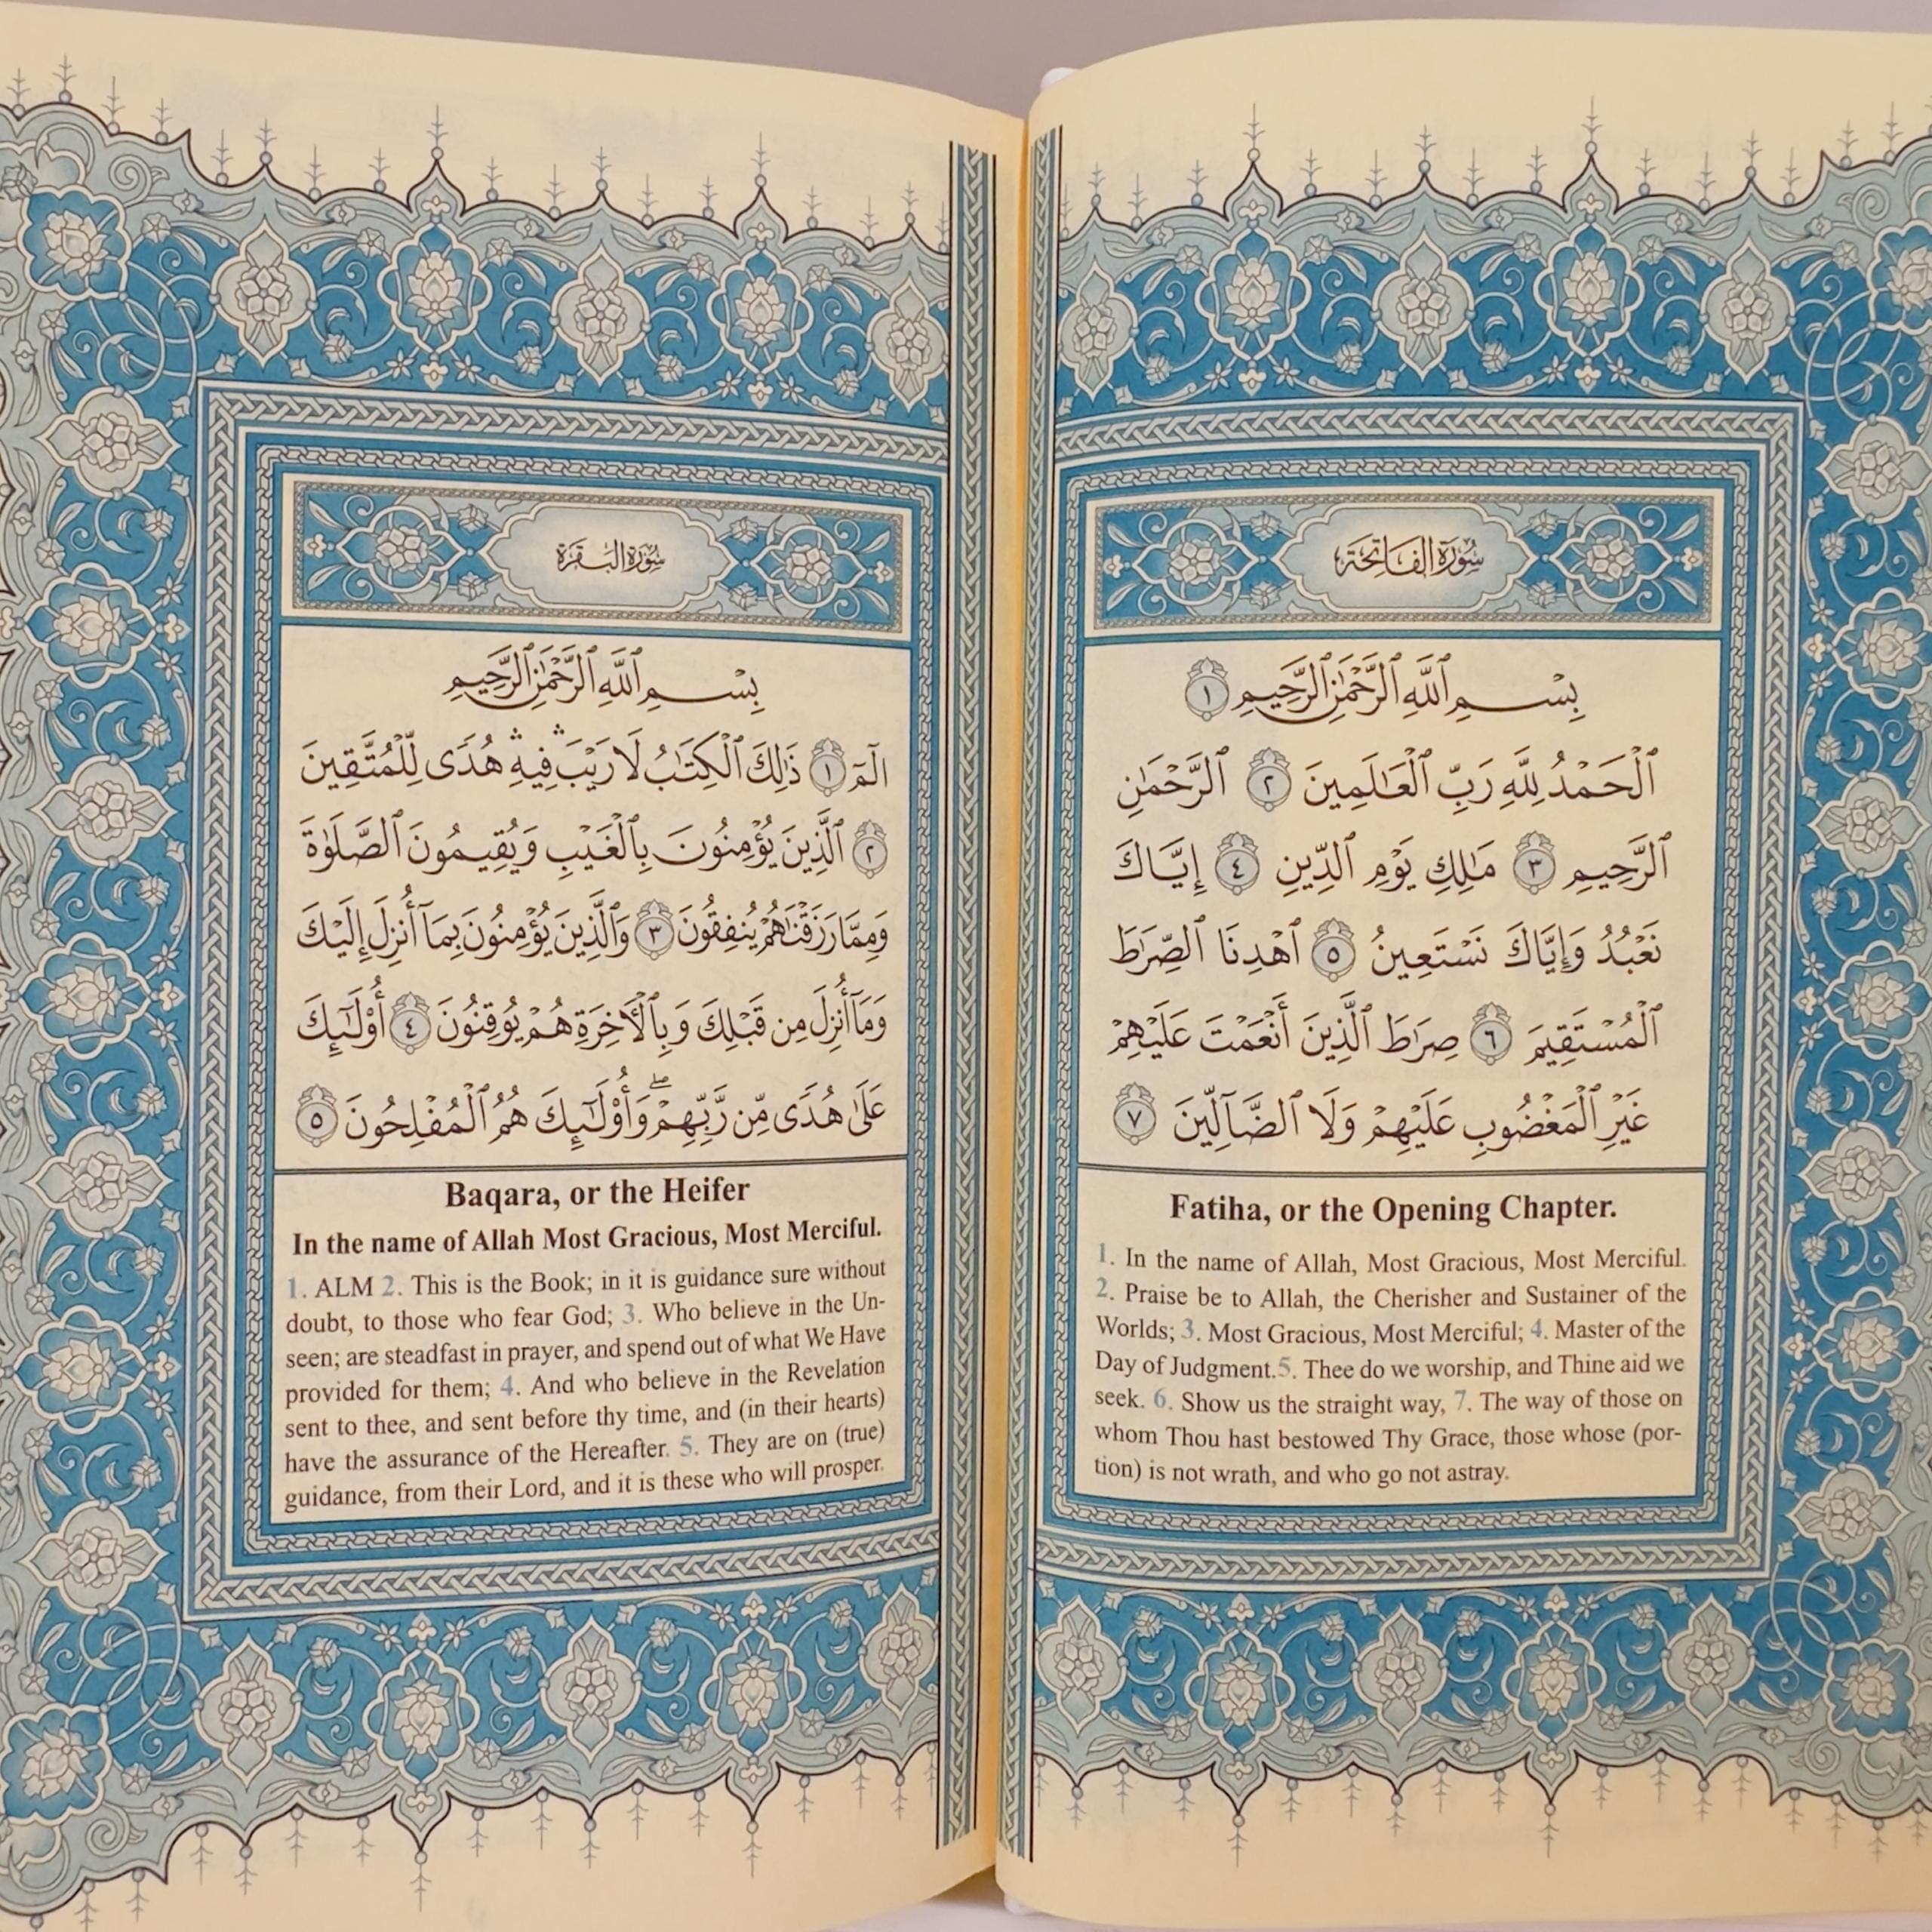 سُورَةُ الفَاتِحَة
بِسْمِ ٱللَّهِ ٱلرَّحْمَٰنِ ٱلرَّحِيمِ ١
ٱلْحَمْدُ لِلَّهِ رَبِّ ٱلْعَٰلَمِينَ ٢ ٱلرَّحْمَٰنِ
ٱلرَّحِيمِ ٣ مَٰلِكِ يَوْمِ ٱلدِّينِ ٤ إِيَّاكَ
نَعْبُدُ وَإِيَّاكَ نَسْتَعِينُ ٥ ٱهْدِنَا ٱلصِّرَٰطَ
ٱلْمُسْتَقِيمَ ٦ صِرَٰطَ ٱلَّذِينَ أَنْعَمْتَ عَلَيْهِمْ
غَيْرِ ٱلْمَغْضُوبِ عَلَيْهِمْ وَلَا ٱلضَّآلِّينَ ٧
Fatiha, or the Opening Chapter.
1. In the name of Allah, Most Gracious, Most Merciful.
2. Praise be to Allah, the Cherisher and Sustainer of the
Worlds; 3. Most Gracious, Most Merciful; 4. Master of the
Day of Judgment.5. Thee do we worship, and Thine aid we
seek. 6. Show us the straight way, 7. The way of those on
whom Thou hast bestowed Thy Grace, those whose (por-
tion) is not wrath, and who go not astray.
سُورَةُ البَقَرَة
بِسْمِ ٱللَّهِ ٱلرَّحْمَٰنِ ٱلرَّحِيمِ
الٓمٓ ١ ذَٰلِكَ ٱلْكِتَٰبُ لَا رَيْبَ ۛ فِيهِ ۛ هُدًى لِّلْمُتَّقِينَ
٢ ٱلَّذِينَ يُؤْمِنُونَ بِٱلْغَيْبِ وَيُقِيمُونَ ٱلصَّلَوٰةَ
وَمِمَّا رَزَقْنَٰهُمْ يُنفِقُونَ ٣ وَٱلَّذِينَ يُؤْمِنُونَ بِمَآ أُنزِلَ إِلَيْكَ
وَمَآ أُنزِلَ مِن قَبْلِكَ وَبِٱلْءَاخِرَةِ هُمْ يُوقِنُونَ ٤ أُو۟لَٰٓئِكَ
عَلَىٰ هُدًى مِّن رَّبِّهِمْ ۖ وَأُو۟لَٰٓئِكَ هُمُ ٱلْمُفْلِحُونَ ٥
Baqara, or the Heifer
In the name of Allah Most Gracious, Most Merciful.
1. ALM 2. This is the Book; in it is guidance sure without
doubt, to those who fear God; 3. Who believe in the Un-
seen; are steadfast in prayer, and spend out of what We Have
provided for them; 4. And who believe in the Revelation
sent to thee, and sent before thy time, and (in their hearts)
have the assurance of the Hereafter. 5. They are on (true)
guidance, from their Lord, and it is these who will prosper.